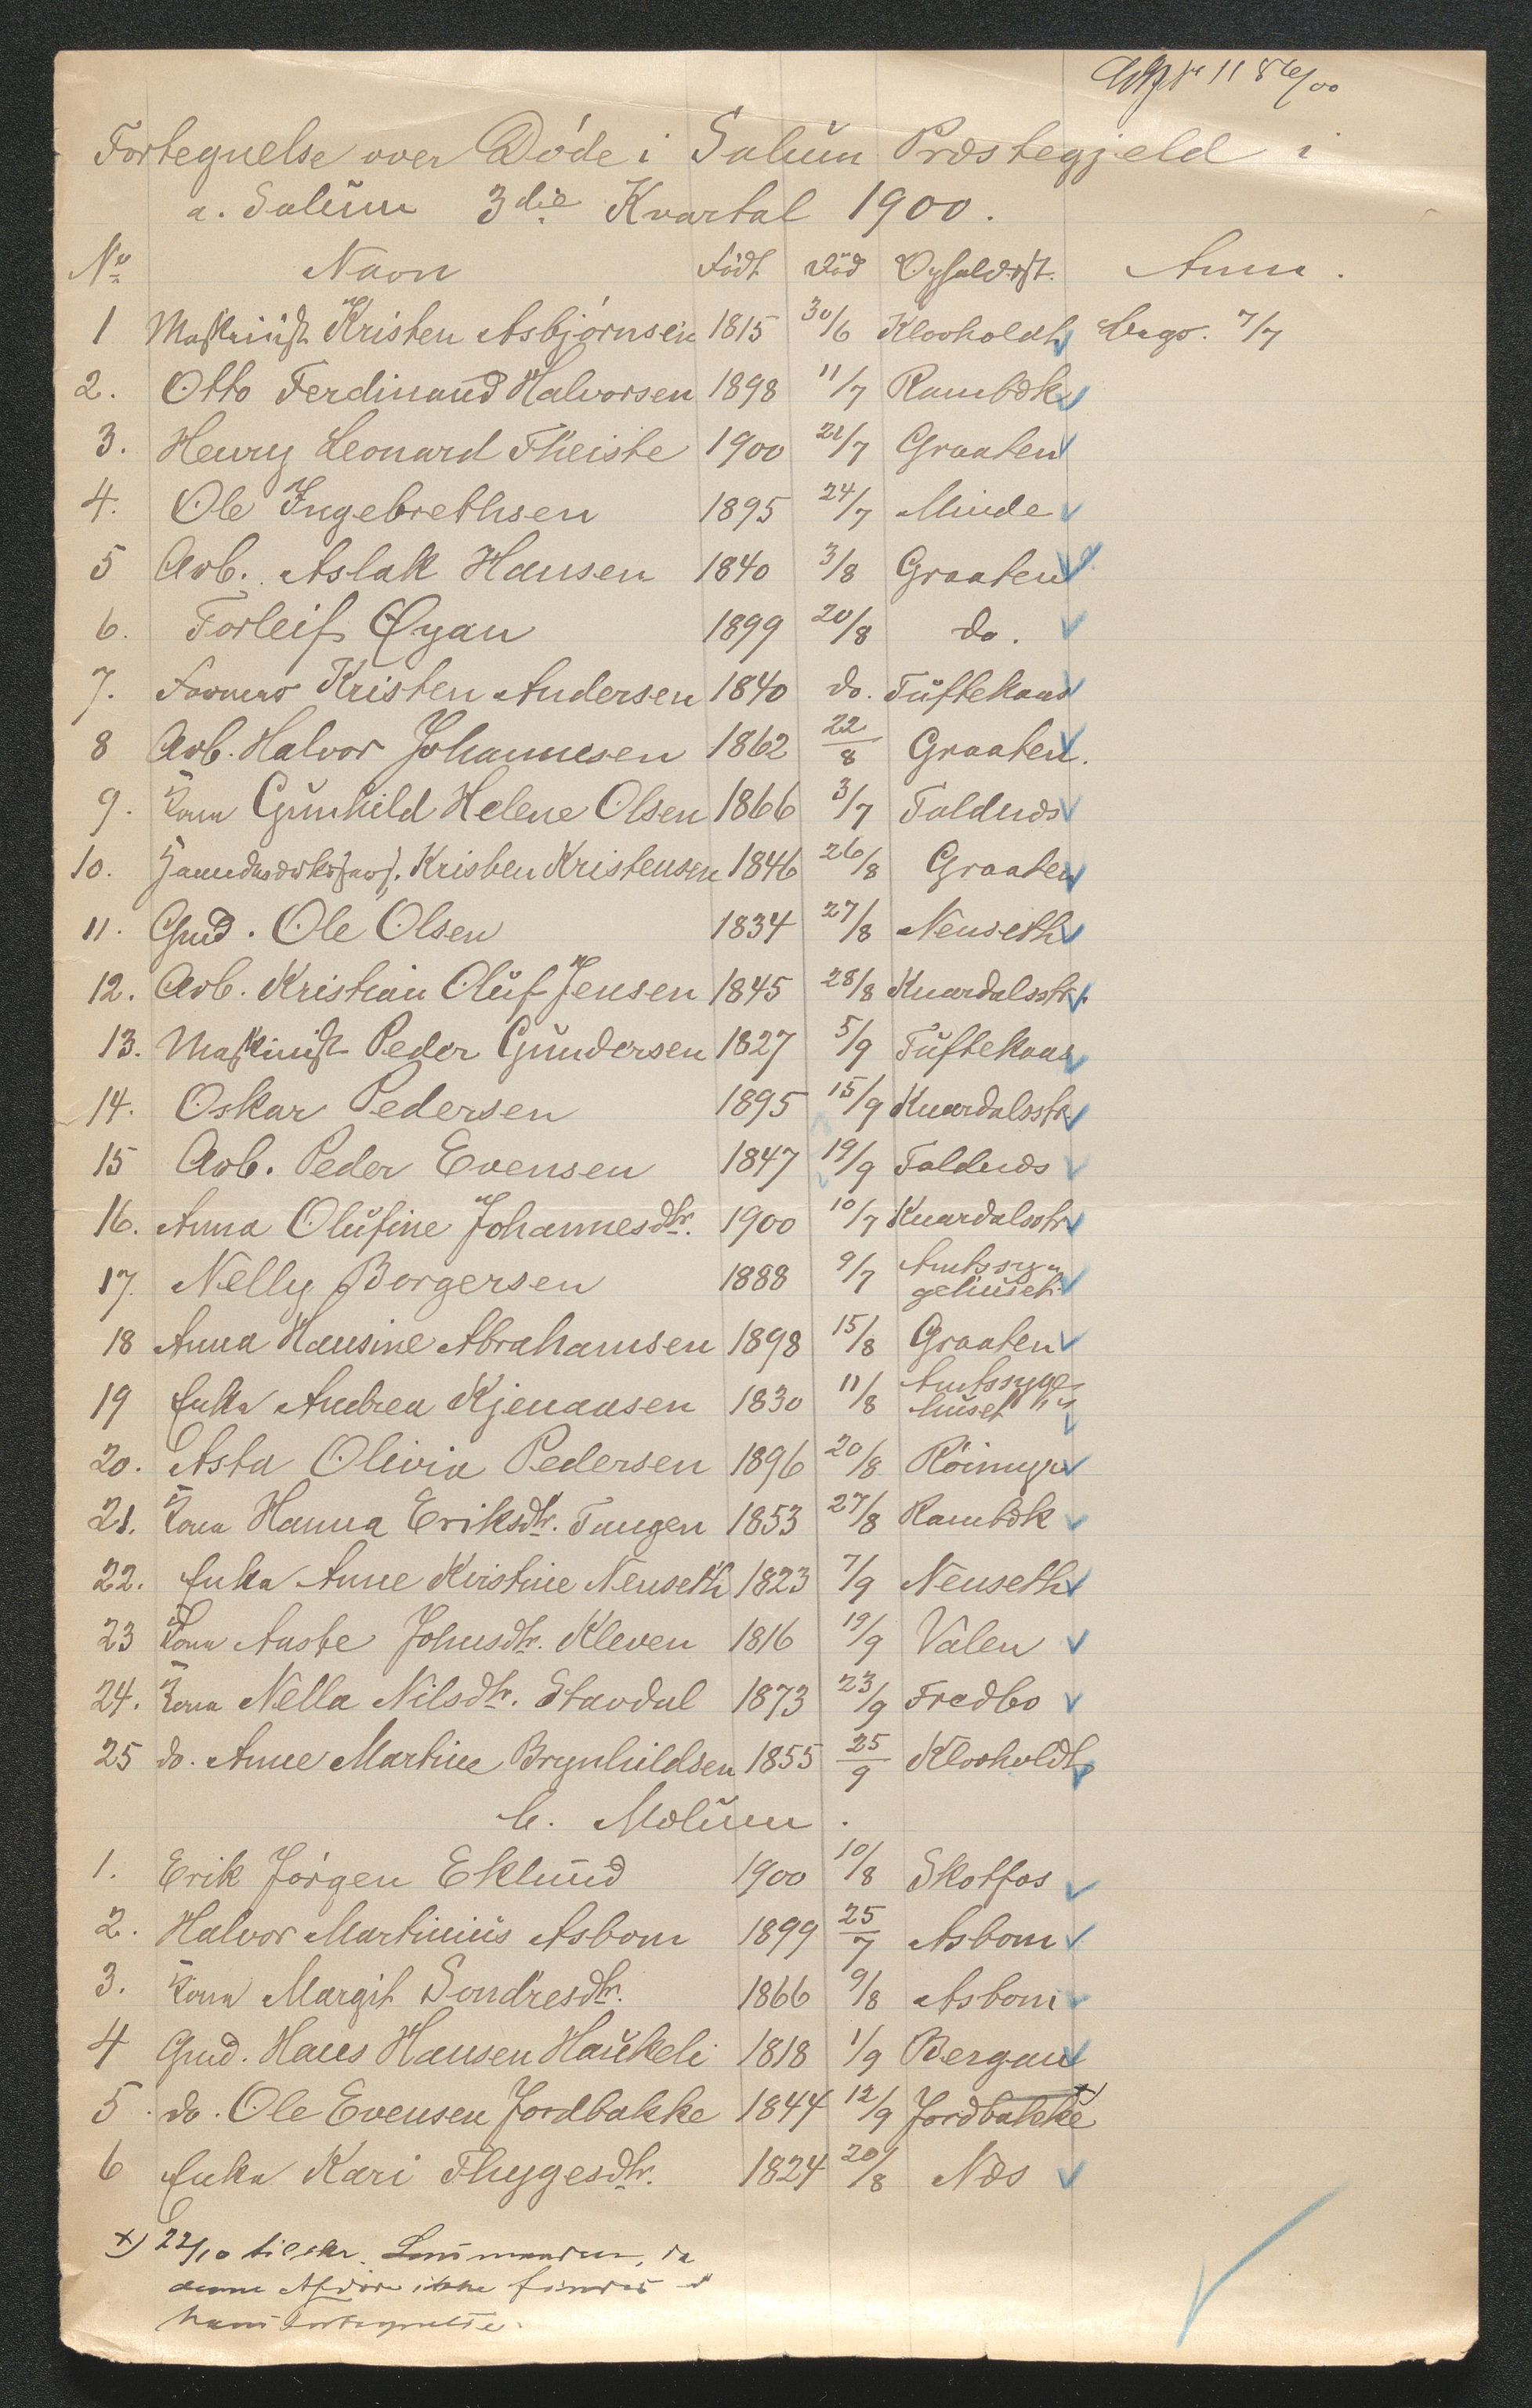 1186/00
Fortegnelse over Døde i Solum Præstegjeld i
a. Solum 3die Kvartal 1900.
No Navn Født Død Opholdsst. Anm.
1 Maskinist Kristen Asbjørnsen 1815 30/6 Klovholdt begr. 7/7
2. Otto Ferdinand Halvorsen 1898 11/7 Rambæk
3. Henry Leonard Theiste 1900 21/7 Graaten
4. Ole Ingebrethsen 1895 24/7 Minde
5 Arb. Aslak Hansen 1840 3/8 Graaten
6. Torleif Øyan 1899 20/8 do.
7. Kristen Andersen 1840 do. Tuftekaas
8 Arb. Halvor Johannesen 1862 22/8 Graaten.
9. Kona Gunhild Helene Olsen 1866 3/7 Toldnæs
10. Kristen Kristensen 1846 26/8 Graaten
11. Gmd. Ole Olsen 1834 27/8 Nenseth
12. Arb. Kristian Oluf Jensen 1845 28/8 Knardalsstr.
13. Maskinist Peder Gundersen 1827 5/9 Tuftekaas
14. Oskar Pedersen 1895 15/9 Knardalsstr
15 Arb. Peder Evensen 1847 19/9 Toldnæs
16. Anna Olufine Johannesdtr. 1900 10/7 Knardalsstr
17. Nelly Borgersen 1888 9/7 Amtssy-
gehuset
18 Anna Hansine Abrahamsen 1898 15/8 Graaten
19 Enke Andrea Kjenaasen 1830 11/8 Amtssyge-
huset
20. Asta Olivia Pedersen 1896 20/8 Röimyr
21. Kona Hanna Eriksdtr. Tangen 1853 27/8 Rambæk
22. Enke Anne Kirstine Nenseth 1823 7/9 Nenseth
23 Kona Aaste Johnsdtr. Kleven 1816 19/9 Valen
24. Kona Nella Nilsdtr. Stavdal 1873 23/9 Fredbo
25 do. Anne Martine Brynhildsen 1855 25/9 Klovholdt
b. Mælum.
1. Erik Jørgen Eklund 1900 10/8 Skotfos
2. Halvor Martinius Asbom 1899 25/7 Asbom
3. Kona Margit Sondresdtr. 1866 9/8 Asbom
4 Gmd. Hans Hansen Haukeli 1818 1/9 Bergan
5. do. Ole Evensen Jordbakke 1844 12/9 Jordbakke x)
6 Enke Kari Thygesdtr. 1824 20/8 Næs
x) 22/10 tilskr. Lensmanden, da
denne Afdøde ikke findes i
hans Fortegnelse.